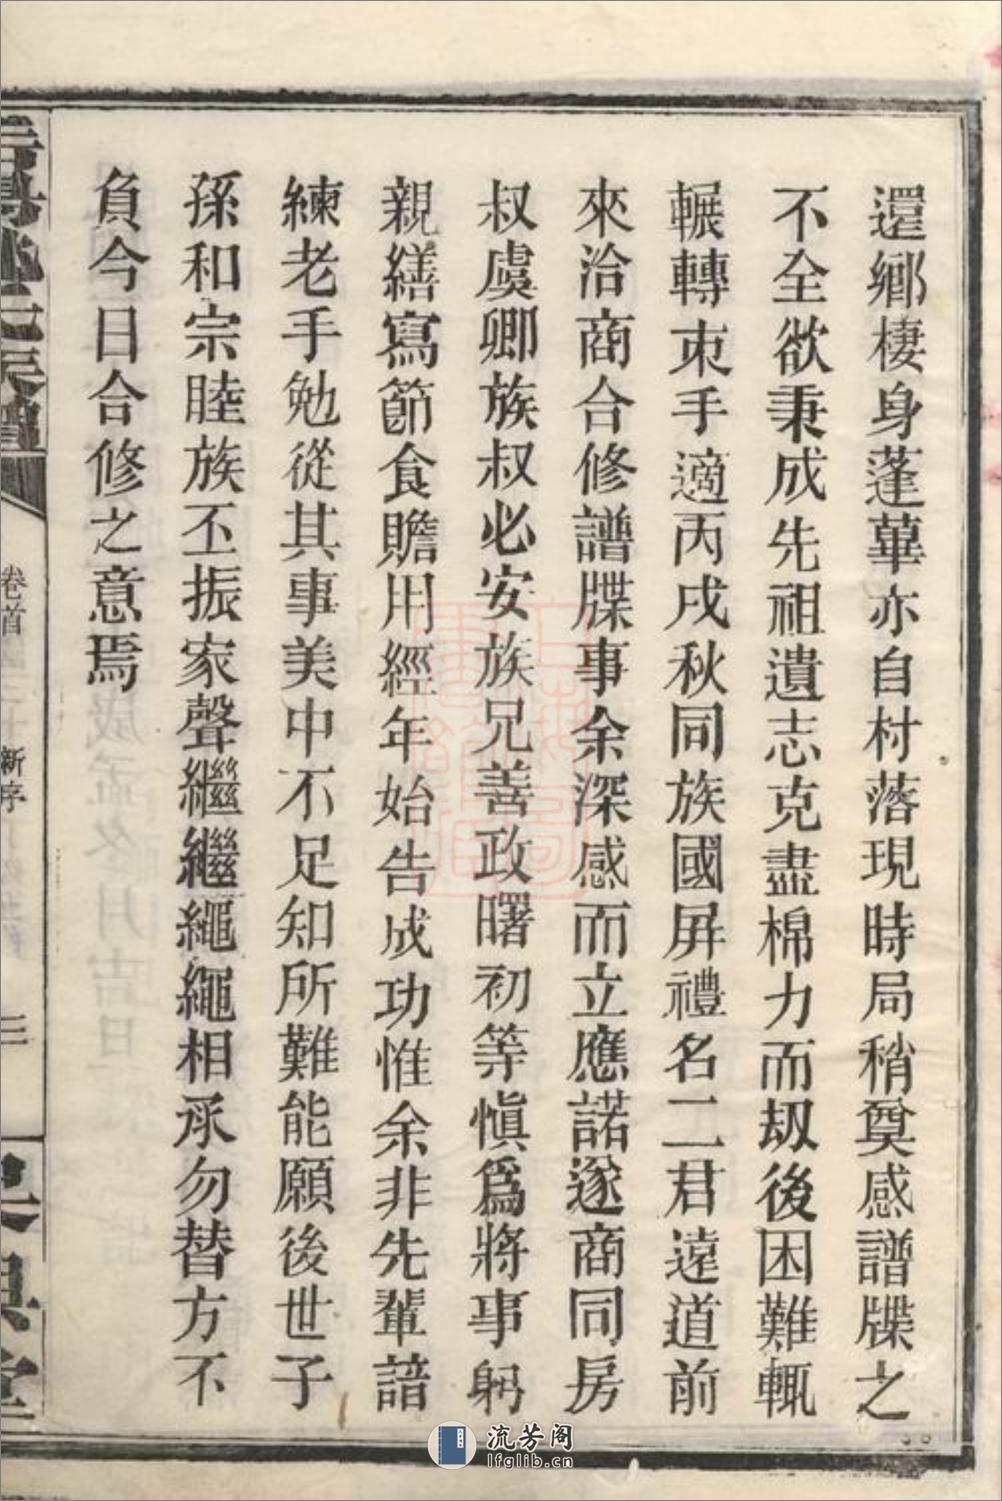 還鄉棲身蓬蓽亦自村落現時局稍奠感譜牒之
不全欲秉成先祖遺志克盡棉力而刼後困難輒
輾轉朿手適丙戌秋同族國屏禮名二君遠道前
來洽商合修譜牒事余深感而立應諾遂商同房
叔虞卿族叔必安族兄善政曙初等慎爲將事躬
親繕寫節食贍用經年始告成功惟余非先輩諳
練老手勉從其事美中不足知所難能願後世子
孫和宗睦族丕振家聲繼繼繩繩相承勿替方不
負今日合修之意焉
卷首
新序
三
流芳阁
lfglib.cn